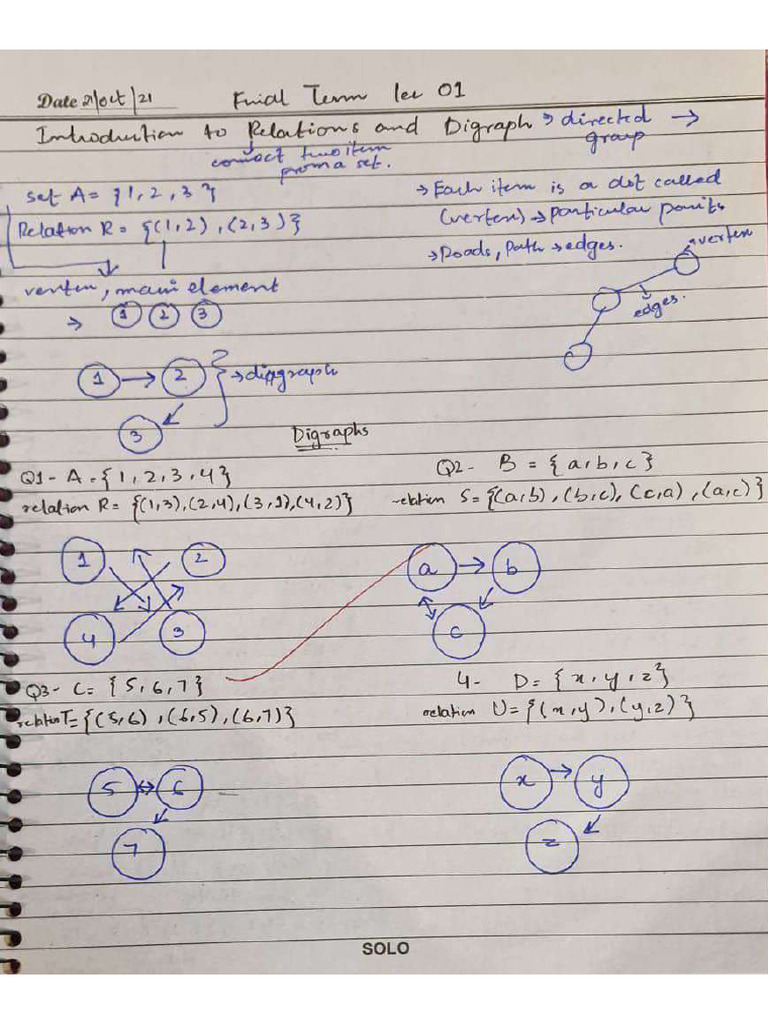 Date 21/oct/21 Final Term lec 01
Introduction to Relations and Digraph → directed →
graph
connect two item
from a set.
set A = {1, 2, 3}
Relation R = {(1,2), (2,3)}
→ Each item is a dot called
(vertex) → particular points
→ Roads, path → edges.
→ vertex
edges.
vertex, main element
→ 1 2 3
1 → 2 → digraph
3
Digraphs
Q1 - A = {1, 2, 3, 4}
relation R = {(1,3), (2,4), (3,1), (4,2)}
Q2 - B = {a, b, c}
relation S = {(a,b), (b,c), (c,a), (a,c)}
1 2
4 3
a → b
c
Q3 - C = {5, 6, 7}
relation T = {(5,6), (6,5), (6,7)}
4 - D = {x, y, z}
relation U = {(x,y), (y,z)}
5 ↔ 6
7
x → y
z
SOLO